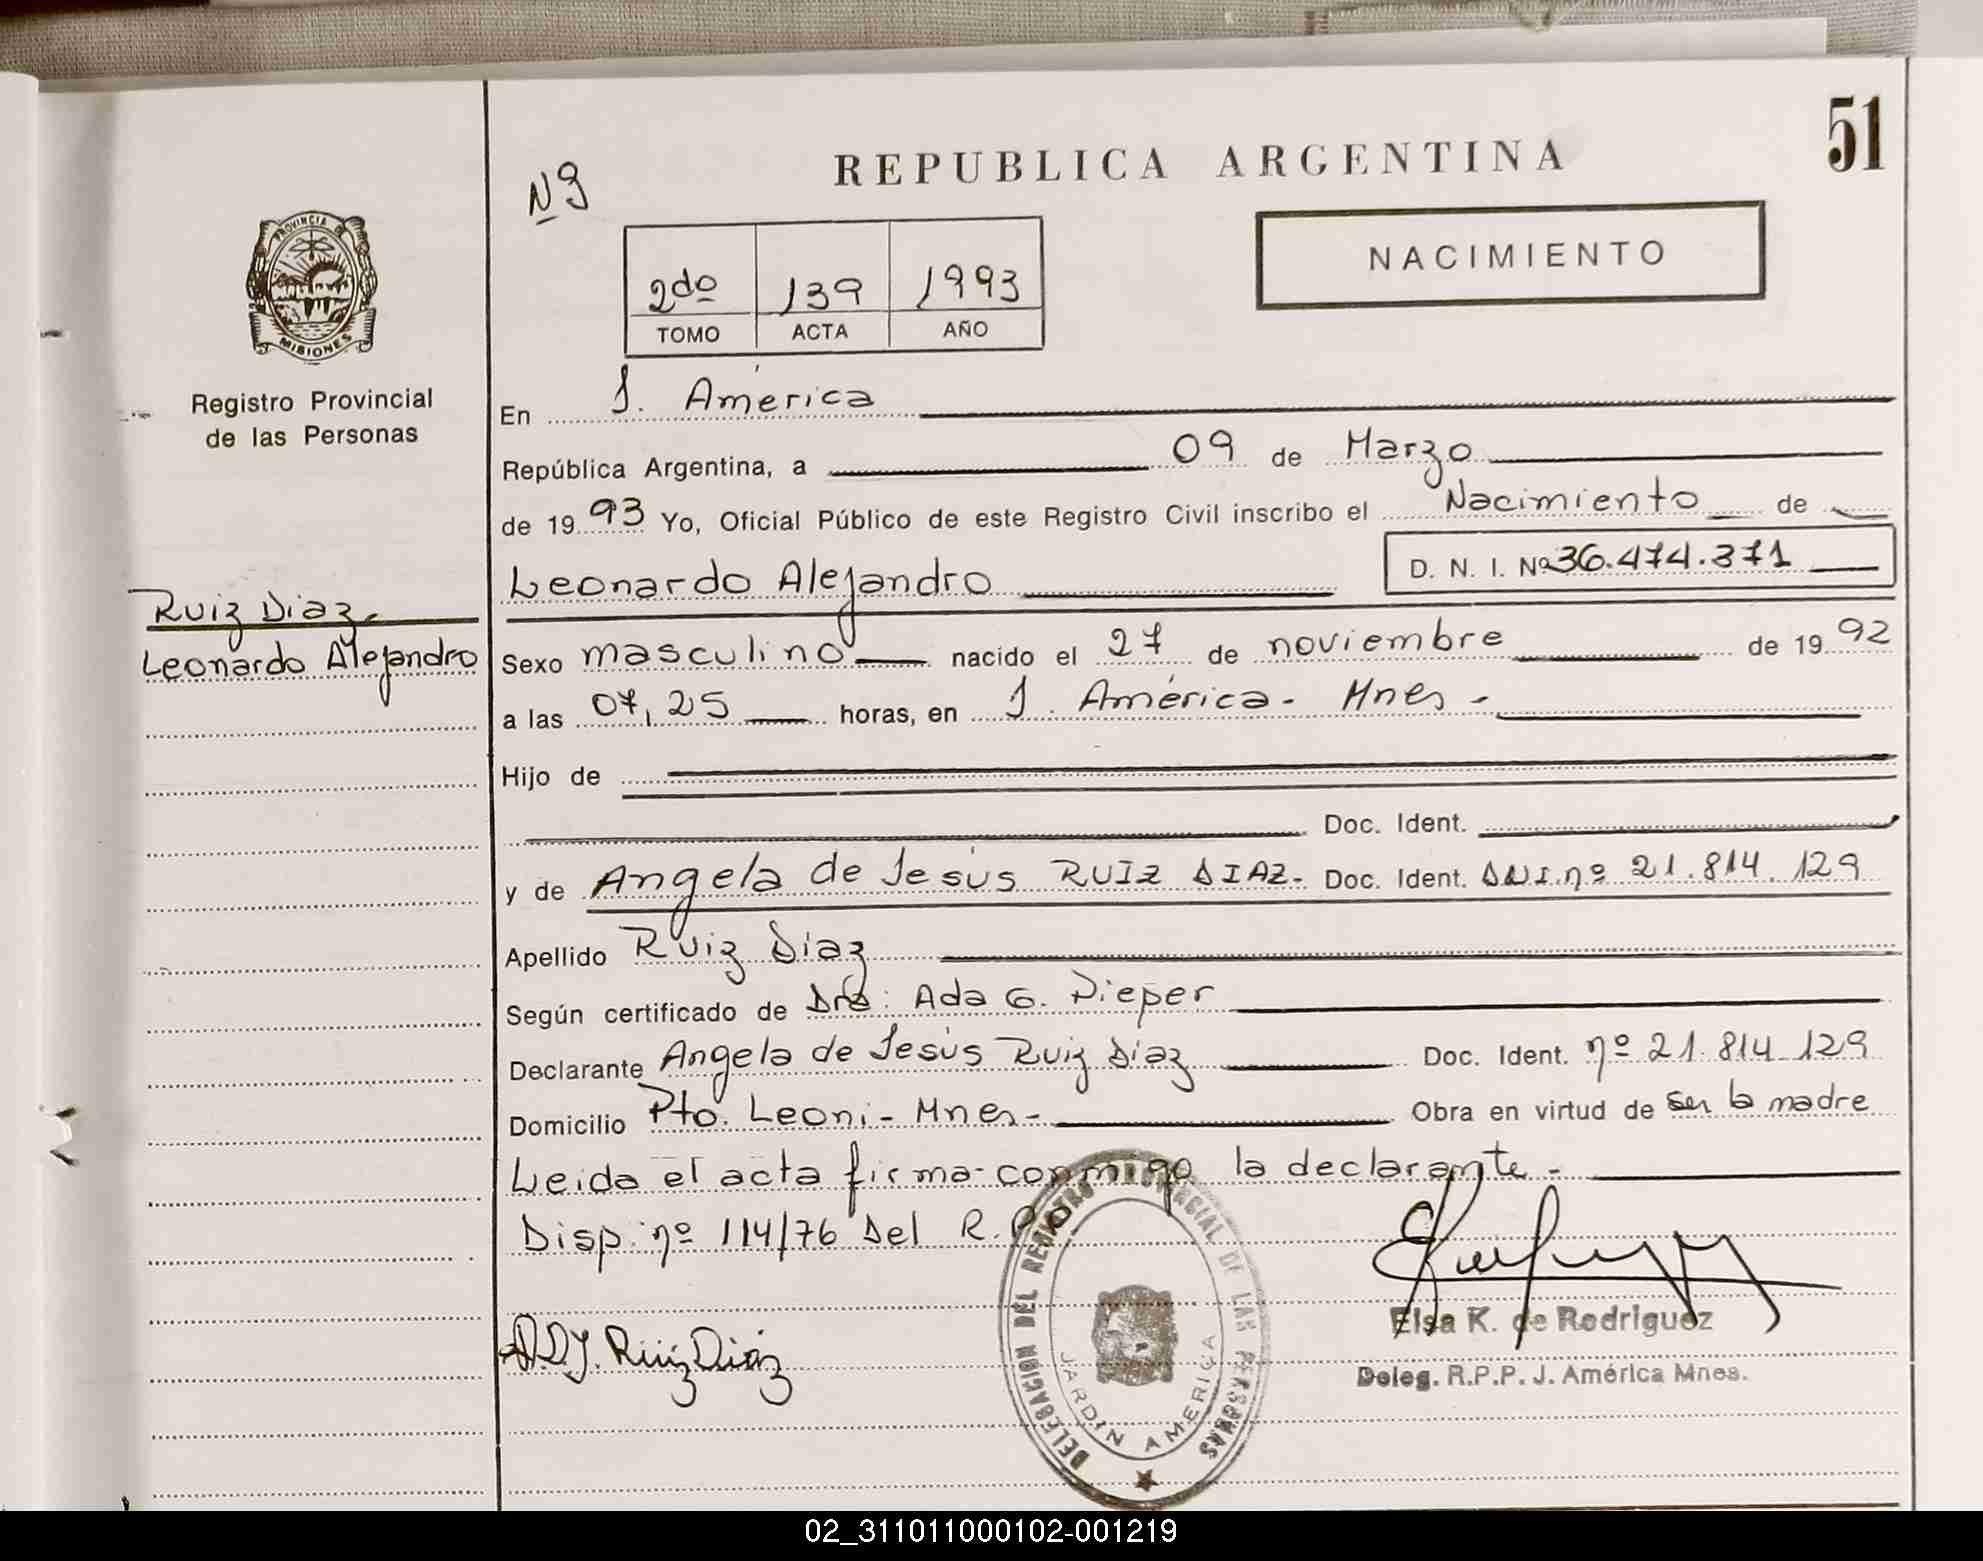 51
REPUBLICA ARGENTINA
Nº
NACIMIENTO
2do 139 1993
TOMO ACTA AÑO
PROVINCIA DE
MISIONES
Registro Provincial
de las Personas
Ruiz Diaz
Leonardo Alejandro
En J. América
República Argentina, a 09 de Marzo
de 1993 Yo, Oficial Público de este Registro Civil inscribo el Nacimiento de
Leonardo Alejandro D. N. I. Nº 36.474.371
Sexo masculino nacido el 27 de noviembre de 1992
a las 07,25 horas, en J. América - Mnes -
Hijo de
Doc. Ident.
y de Angela de Jesús RUIZ DIAZ- Doc. Ident. DNI.nº 21.814.129
Apellido Ruiz Diaz
Según certificado de Dra: Ada G. Pieper
Declarante Angela de Jesús Ruiz Diaz Doc. Ident. nº 21.814.129
Domicilio Pto. Leoni - Mnes - Obra en virtud de ser la madre
Leida el acta firma conmigo la declarante -
Disp. nº 114/76 Del R.P.P.
A.D.J. Ruiz Diaz
DELEGACION DEL REGISTRO PROVINCIAL DE LAS PERSONAS
JARDIN AMERICA
Elsa K. de Rodriguez
Deleg. R.P.P. J. América Mnes.
02_311011000102-001219